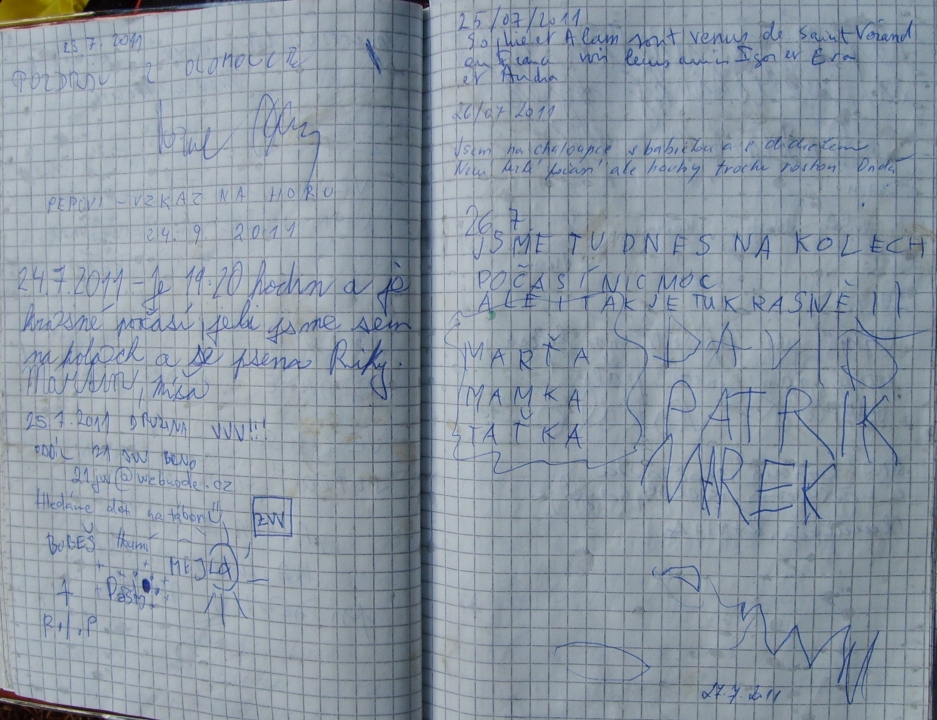 23.7. 2011
POZDRAV Z OLOMOUCE
PEPOVI - VZKAZ NA HORU
24. 9 2011
24.7.2011 - Je 11.20 hodin a je
krásné počasí, jeli jsme sem
na kolách a se psena Riky.
Míša
25.7.2011 DRUŽINA VVV!!!
ODDÍL 21 BRNO
@webnode.cz
Hledáme děti na tábor!
ZVV
BOBEŠ tkaní
MEJLA
R.I.P
25/07/2011.
Sophie et Alain sont venus de Saint Vérand
en France
et Andra
26/07 2011
Jsem na chaloupce s babičkou a s dědečkem
Není počasí ale houby trochu rostou. Onda
26. 7.
JSME TU DNES NA KOLECH
POČASÍ NIC MOC
ALE I TAK JE TU KRASNĚ!!
MARŤA
MAMKA
TAŤKA
DAVID
PATRIK
MAREK
27.7.2011